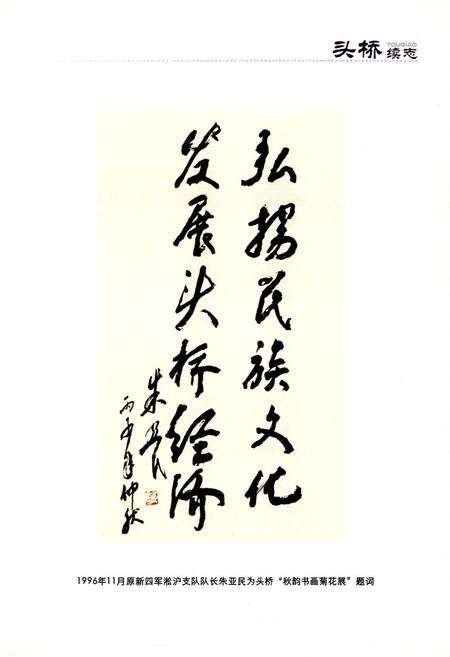 头桥
TOUQIAO
续志
弘扬民族文化
发展头桥经济
朱亚民
丙子年仲秋
1996年11月原新四军淞沪支队队长朱亚民为头桥“秋韵书画菊花展”题词